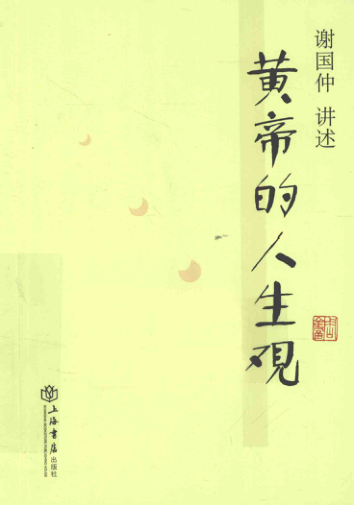 谢国仲 讲述
黄帝的人生观
上海书店
出版社